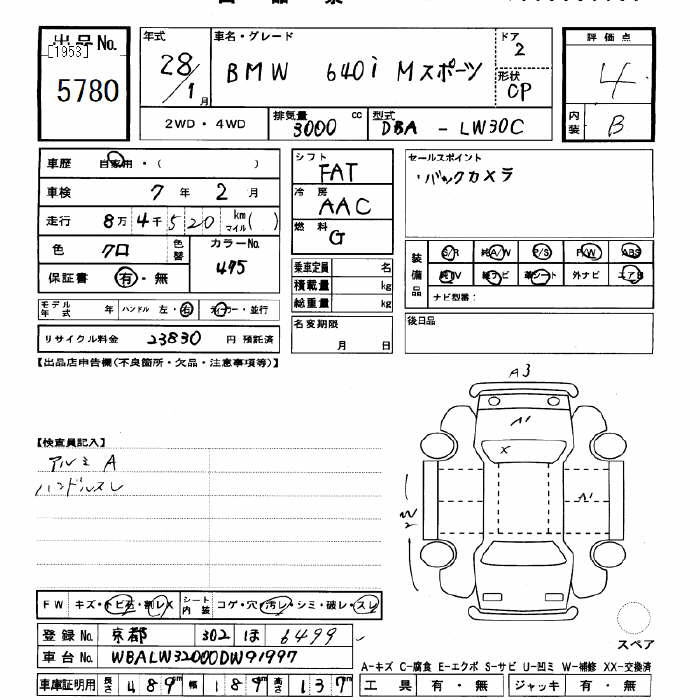 出品 No.
[1953]
5780
年式
28/1月
車名・グレード
BMW 640i Mスポーツ
ドア
2
形状
CP
評価点
4
内装
B
2WD・4WD
排気量
3000 cc
型式
DBA - LW30C
車歴 自家用・( )
車検 7年 2月
走行 8万4千520 km マイル( )
色 クロ
色替
カラーNo.
475
保証書 有・無
モデル年式 年
ハンドル 左・右
ディーラー・並行
リサイクル料金 23830 円 預託済
シフト
FAT
冷房
AAC
燃料
G
乗車定員 名
積載量 kg
総重量 kg
名変期限
月 日
セールスポイント
・バックカメラ
装備品
S/R 純A/W P/S P/W ABS
純TV 純ナビ 革シート 外ナビ エアB
ナビ型番:
後日品
【出品店申告欄(不良箇所・欠品・注意事項等)】
【検査員記入】
アルミ A
ハンドルスレ
A3
A1
X
A1
W2
スペア
FW キズ・トビ石・割レX
シート内装 コゲ・穴・汚レ・シミ・破レ・スレ
登録 No. 京都 302 ほ 6499
車台 No. WBALW32000DW91997
車庫証明用 長さ 489 幅 189 高さ 137
A-キズ C-腐食 E-エクボ S-サビ U-凹ミ W-補修 XX-交換済
工具 有・無 ジャッキ 有・無